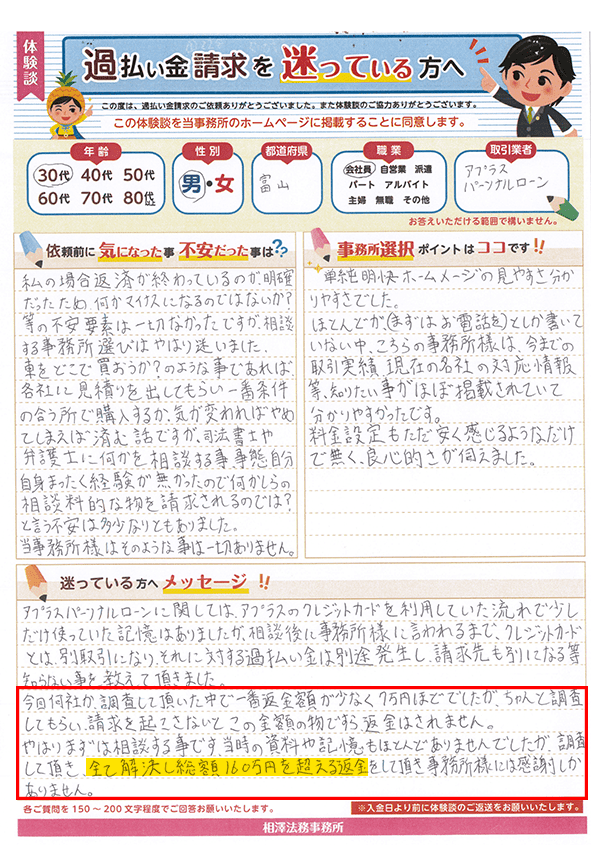 体験談
過払い金請求を迷っている方へ
この度は、過払い金請求のご依頼ありがとうございました。また体験談のご協力ありがとうございます。
この体験談を当事務所のホームページに掲載することに同意します。
年齢
30代 40代 50代
60代 70代 80代以上
性別
男・女
都道府県
富山
職業
会社員 自営業 派遣
パート アルバイト
主婦 無職 その他
取引業者
アプラス
パーソナルローン
お答えいただける範囲で構いません。
依頼前に気になった事 不安だった事は??
私の場合返済が終わっているのが明確
だったため何かマイナスになるのではないか?
等の不安要素は一切なかったですが、相談
する事務所選びはやはり迷いました。
車をどこで買おうか?のような事であれば、
各社に見積りを出してもらい一番条件
の合う所で購入するか、気が変わればやめ
てしまえば済む話ですが、司法書士や
弁護士に何かを相談する事事態自分
自身まったく経験が無かったので何かしらの
相談料的な物を請求されるのでは?
と言う不安は多少なりともありました。
当事務所様はそのような事は一切ありません。
事務所選択ポイントはココです!!
単純明快ホームページの見やすさ分か
りやすさでした。
ほとんどが(まずはお電話を)としか書いて
いない中、こちらの事務所様は、今までの
取引実績、現在の各社の対応情報
等、知りたい事がほぼ掲載されていて
分かりやすかったです。
料金設定もただ安く感じるようなだけ
で無く、良心的さが伺えました。
迷っている方へメッセージ!!
アプラスパーソナルローンに関しては、アプラスのクレジットカードを利用していた流れで少し
だけ使っていた記憶はありましたが、相談後に事務所様に言われるまで、クレジットカード
とは、別取引になり、それに対する過払い金は別途発生し、請求先も別になる等
知らない事を教えて頂きました。
今回何社か、調査して頂いた中で一番返金額が少なく7万円ほどでしたが、ちゃんと調査
してもらい、請求を起こさないとこの金額の物ですら返金はされません。
やはりまずは相談する事です。当時の資料や記憶もほとんどありませんでしたが、調査
して頂き、全て解決し総額160万円を超える返金をして頂き事務所様には感謝しか
ありません。
各ご質問を150〜200文字程度でご回答お願いいたします。
※入金日より前に体験談のご返送をお願いいたします。
相澤法務事務所